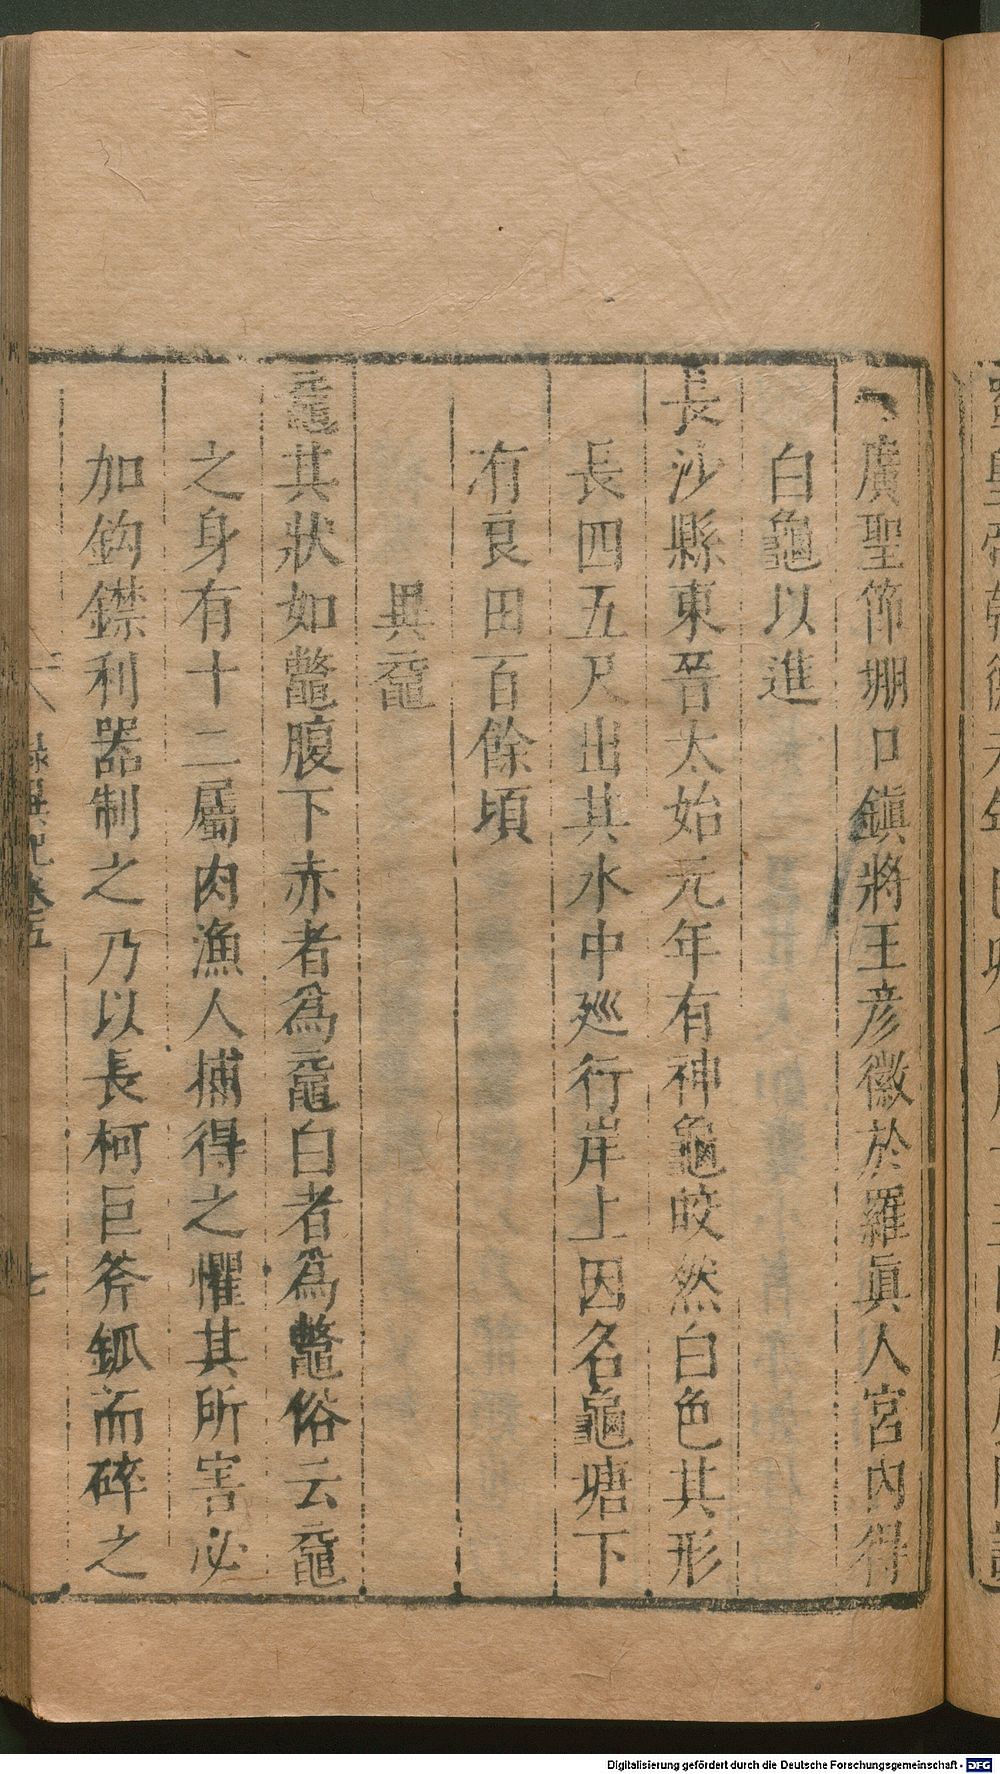 廣聖節堋口鎮將王彥徽於羅眞人宮內得
白龜以進
長沙縣東晉太始元年有神龜皎然白色其形
長四五尺出其水中廵行岸上因名龜塘下
有良田百餘頃
異黿
黿其狀如鼈腹下赤者爲黿白者爲鼈俗云黿
之身有十二屬肉漁人捕得之懼其所害必
加鈎鐥利器制之乃以長柯巨斧釽而碎之
錄異記卷五
七
Digitalisierung gefördert durch die Deutsche Forschungsgemeinschaft - DFG